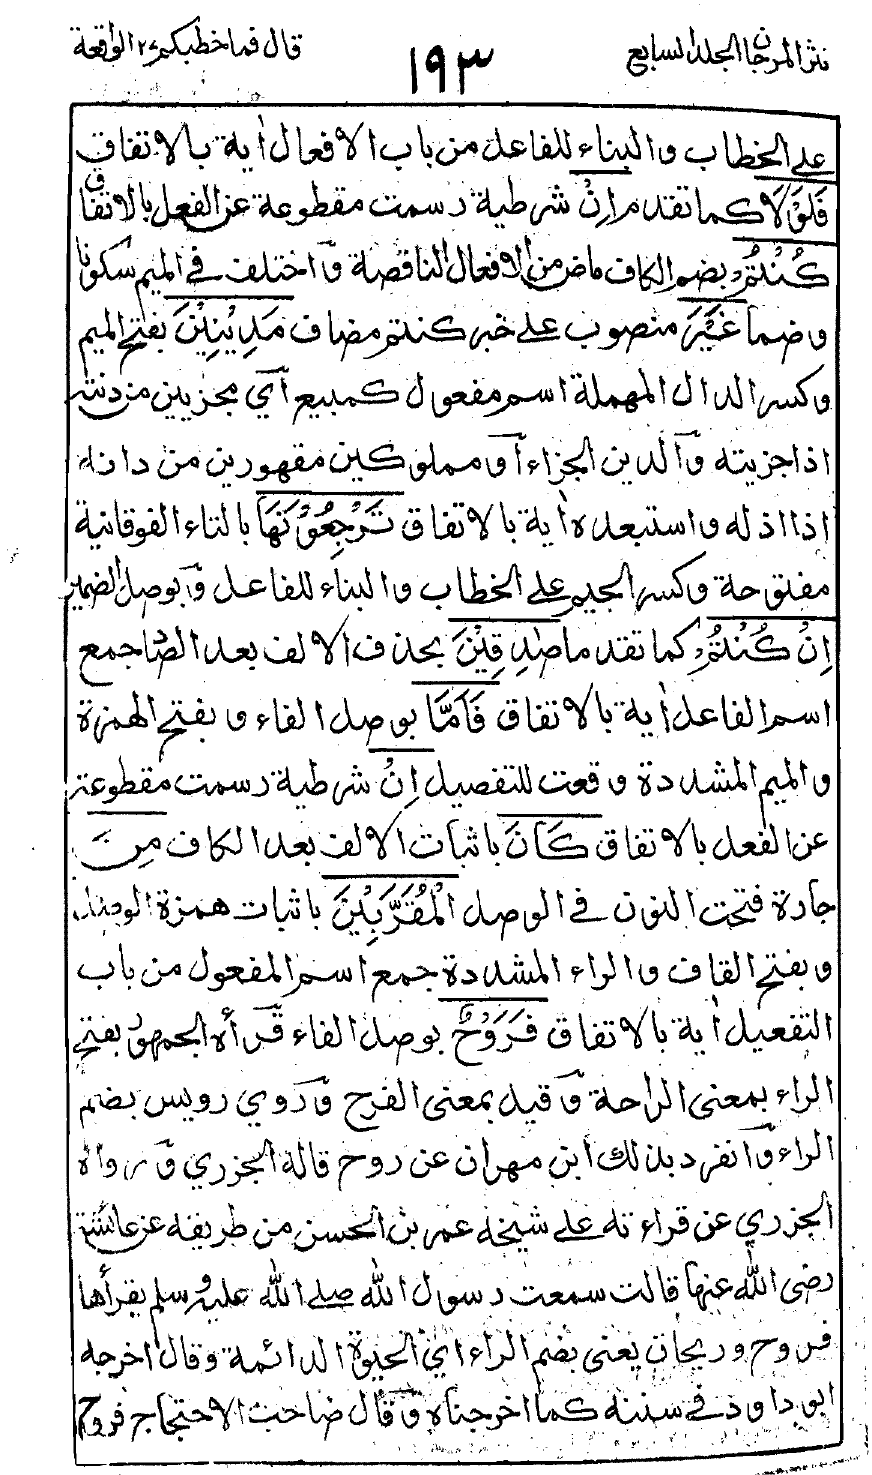 نثر المرجان المجلد السابع
١٩٣
قال فما خطبكم ٢٧ الواقعة
على الخطاب والبناء للفاعل من باب الافعال أية بالاتفاق
فَلَوْلَا كما تقدم اِنْ شرطية رسمت مقطوعة عن الفعل بالاتفاق
كُنْتُمْ بضم الكاف ماض من الافعال الناقصة واختلف في الميم سكونا
وضما غَيْرَ منصوب على خبر كنتم مضاف مَدِيْنِيْنَ بفتح الميم
وكسر الدال المهملة اسم مفعول كمبيع أي مجزيين من دنته
اذا جزيته والدين الجزاء أو مملوكين مقهورين من دانه
اذا اذله واستبعده أية بالاتفاق تَرْجِعُوْنَهَا بالتاء الفوقانية
مفتوحة وكسر الجيم على الخطاب والبناء للفاعل وبوصل الضمير
اِنْ كُنْتُمْ كما تقدما صٰدِقِيْنَ بحذف الالف بعد الصاد جمع
اسم الفاعل أية بالاتفاق فَاَمَّا بوصل الفاء وبفتح الهمزة
والميم المشددة وقعت للتفصيل اِنْ شرطية رسمت مقطوعة
عن الفعل بالاتفاق كَانَ باثبات الالف بعد الكاف مِنَ
جارة فتحت النون في الوصل الْمُقَرَّبِيْنَ باثبات همزة الوصل
وبفتح القاف والراء المشددة جمع اسم المفعول من باب
التفعيل أية بالاتفاق فَرَوْحٌ بوصل الفاء قرأه الجمهور بفتح
الراء بمعنى الراحة وقيل بمعنى الفرح وروي رويس بضم
الراء وانفرد بذلك ابن مهران عن روح قاله الجزري ورواه
الجزري عن قراءته على شيخه عمر بن الحسن من طريقه عن عائشة
رضى الله عنها قالت سمعت رسول الله صلى الله عليه وسلم يقرأها
فروح وريحان يعنى بضم الراء اي الحيوة الدائمة وقال اخرجه
ابو داود في سننه كما اخرجناه وقال صاحب الاحتجاج فروح